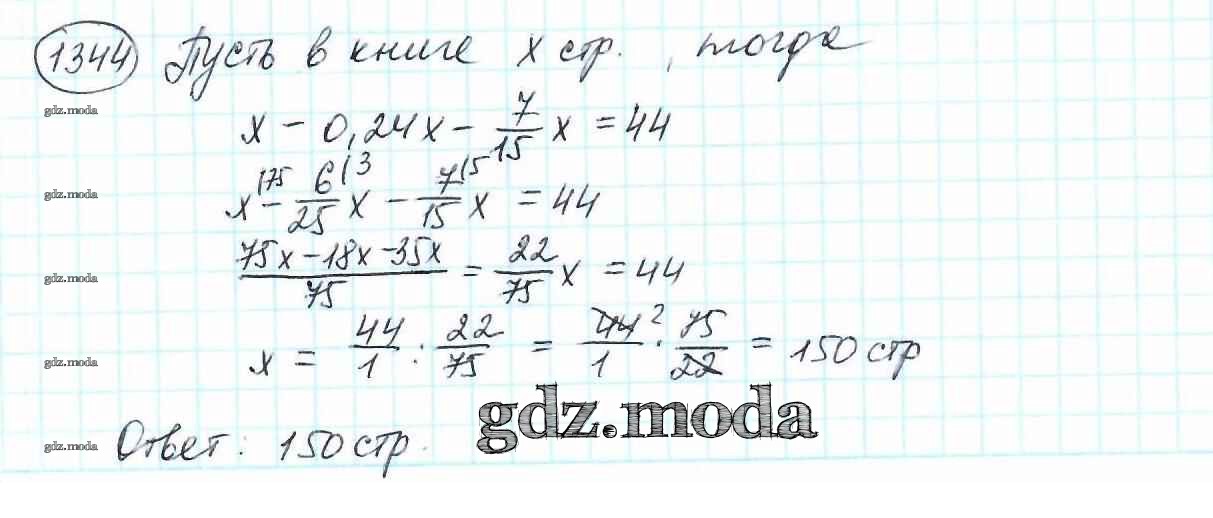 1344 Пусть в книге x стр., тогда
gdz.moda
x - 0,24x - 7/15 x = 44
gdz.moda
x(75 - 6(3/25 x - 7(5/15 x = 44
gdz.moda
75x - 18x - 35x/75 = 22/75 x = 44
gdz.moda
x = 44/1 : 22/75 = 44 2/1 · 75/22 = 150 стр
gdz.moda
gdz.moda
Ответ: 150 стр.